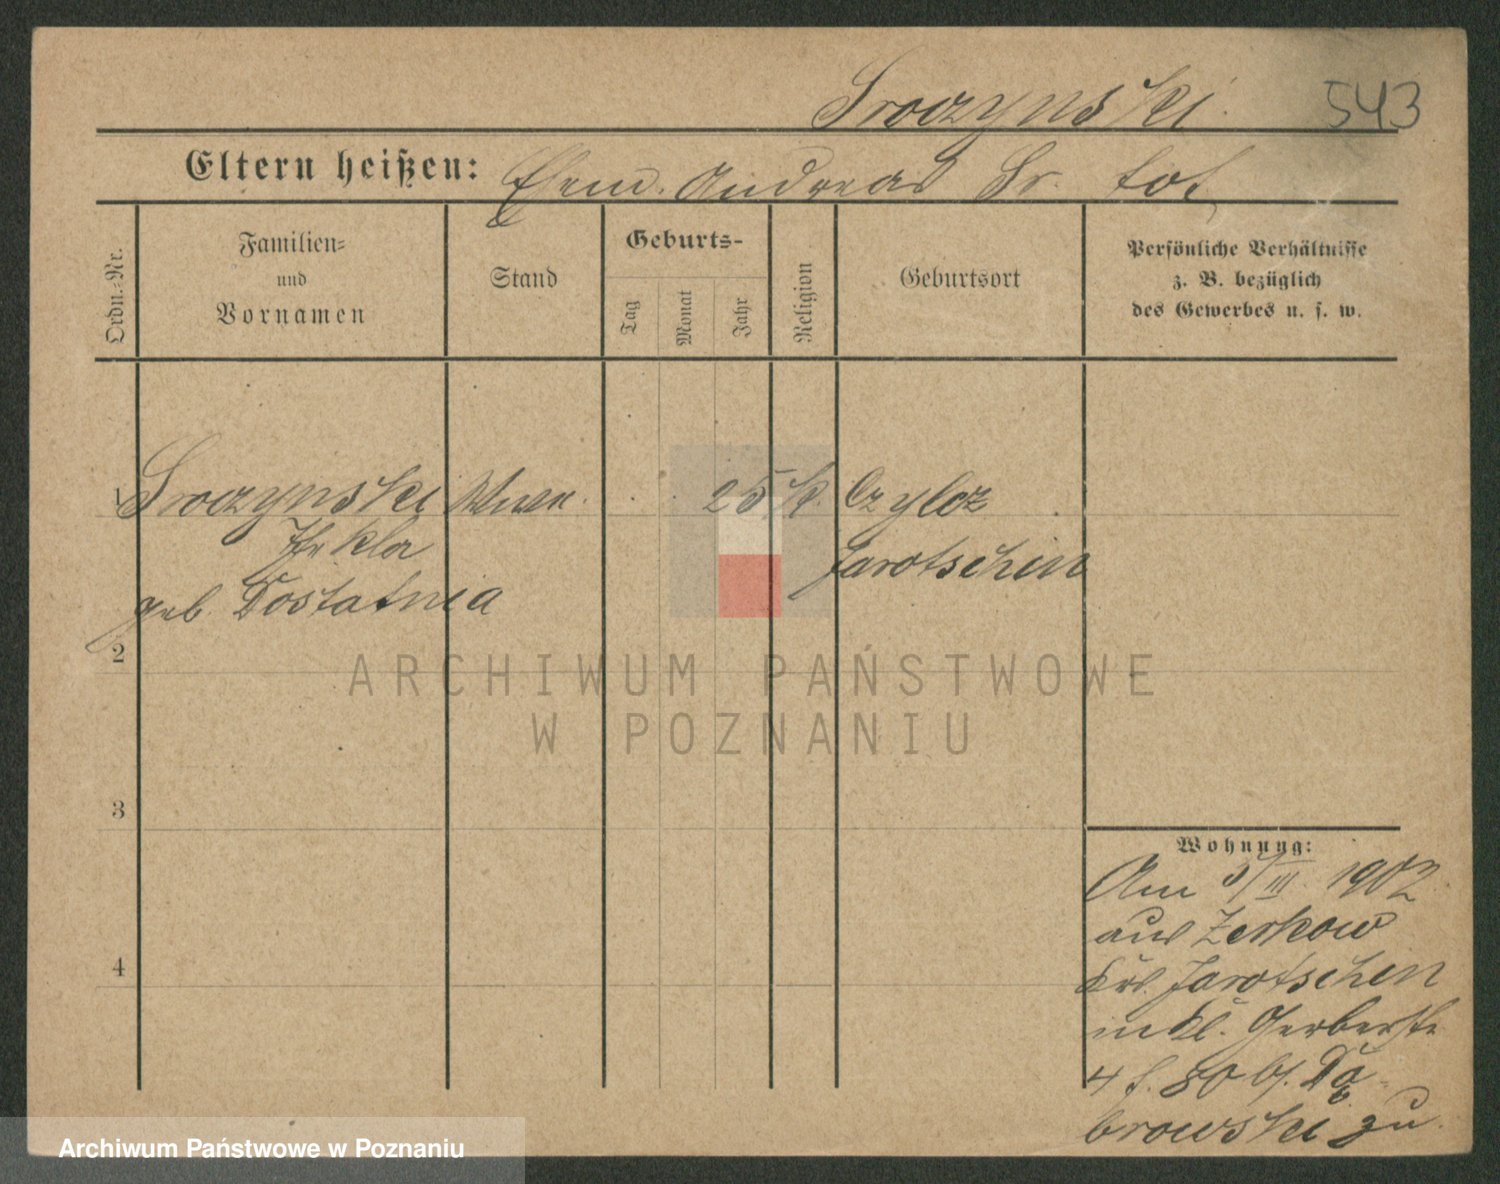 Sroczynski
543
Eltern heißen: Ehem. Andreas Sr. tot
Ordn.-Nr.
Familien-
und
Vornamen
Stand
Geburts-
Tag
Monat
Jahr
Religion
Geburtsort
Persönliche Verhältnisse
z. B. bezüglich
des Gewerbes u. s. w.
1 Sroczynski Wwe. 25 k.
Thekla Jarotschin
geb. Dostatnia
2
ARCHIWUM PAŃSTWOWE
W POZNANIU
3
4
Wohnung:
Am 5/III. 1902
aus Zerkow
Krs. Jarotschin
in Kl. Gerberstr.
4 f. 80 b/. Dą-
browski zu.
Archiwum Państwowe w Poznaniu